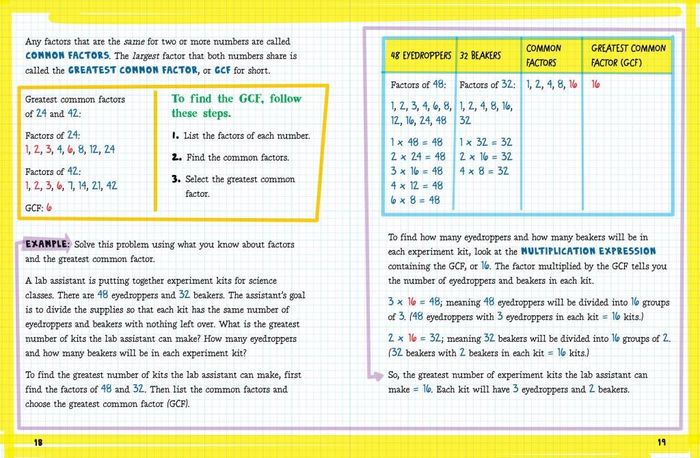 Any factors that are the same for two or more numbers are called
COMMON FACTORS. The largest factor that both numbers share is
called the GREATEST COMMON FACTOR, or GCF for short.
Greatest common factors
of 24 and 42:
Factors of 24:
1, 2, 3, 4, 6, 8, 12, 24
Factors of 42:
1, 2, 3, 6, 7, 14, 21, 42
GCF: 6
To find the GCF, follow
these steps.
1. List the factors of each number.
2. Find the common factors.
3. Select the greatest common
factor.
EXAMPLE: Solve this problem using what you know about factors
and the greatest common factor.
A lab assistant is putting together experiment kits for science
classes. There are 48 eyedroppers and 32 beakers. The assistant's goal
is to divide the supplies so that each kit has the same number of
eyedroppers and beakers with nothing left over. What is the greatest
number of kits the lab assistant can make? How many eyedroppers
and how many beakers will be in each experiment kit?
To find the greatest number of kits the lab assistant can make, first
find the factors of 48 and 32. Then list the common factors and
choose the greatest common factor (GCF).
18
48 EYEDROPPERS
32 BEAKERS
COMMON
FACTORS
GREATEST COMMON
FACTOR (GCF)
Factors of 48:
1, 2, 3, 4, 6, 8,
12, 16, 24, 48
1 × 48 = 48
2 × 24 = 48
3 × 16 = 48
4 × 12 = 48
6 × 8 = 48
Factors of 32:
1, 2, 4, 8, 16,
32
1 × 32 = 32
2 × 16 = 32
4 × 8 = 32
1, 2, 4, 8, 16
16
To find how many eyedroppers and how many beakers will be in
each experiment kit, look at the MULTIPLICATION EXPRESSION
containing the GCF, or 16. The factor multiplied by the GCF tells you
the number of eyedroppers and beakers in each kit.
3 × 16 = 48; meaning 48 eyedroppers will be divided into 16 groups
of 3. (48 eyedroppers with 3 eyedroppers in each kit = 16 kits.)
2 × 16 = 32; meaning 32 beakers will be divided into 16 groups of 2.
(32 beakers with 2 beakers in each kit = 16 kits.)
So, the greatest number of experiment kits the lab assistant can
make = 16. Each kit will have 3 eyedroppers and 2 beakers.
19